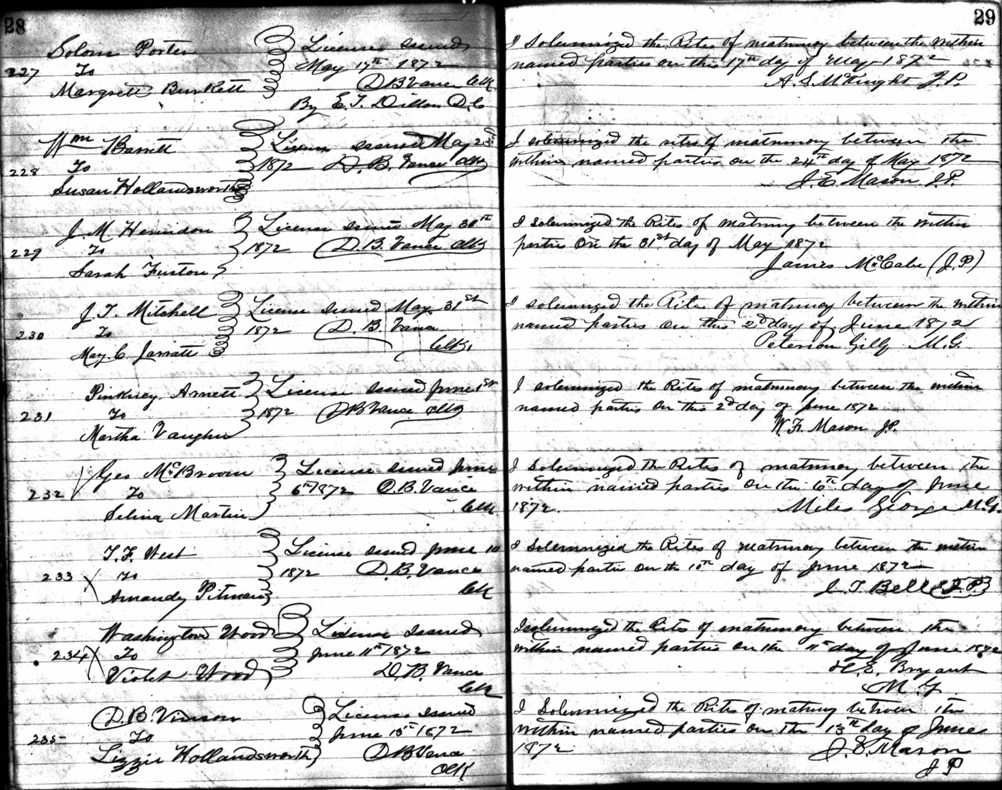 28
Solom Porter
227 To
Margrett Burkett
License issued
May 17th 1872
D B Vance Clk
By E. T. Dillon D.C
Wm Barrett
228 To
Susan Hollandsworth
License issued May 23d
1872 D. B. Vance Clk
J. M. Herindon
229 To
Sarah Fuston
License issued May 30th
1872 D. B. Vance Clk
J. T. Mitchell
230 To
May. C. Jarratt
License issued May 31st
1872 D. B. Vance
Clk
Pinkney Arnett
231 To
Martha Vaughn
License issued June 1st
1872 D B Vance Clk
Geo McBroom
232 To
Selina Martin
License issued June
6th 1872 D. B. Vance
Clk
T. F. West
233 To
Amandy Pitman
License issued June 10
1872 D. B. Vance
Clk
Washington Wood
234 To
Violet Wood
License Issued
June 11th 1872
D. B. Vance
Clk
D. B. Vinson
235 To
Lizzie Hollandsworth
License Issued
June 13th 1872
D B Vance
Clk
29
I Solemnized the Rites of matrimony between the within
named parties on this 17th day of May 1872
A. S. McKnight J.P.
I solemnized the rites of matrimony between the
within named parties on the 24th day of May 1872
J. E. Mason J.P.
I Solemnized the Rites of matrimony between the within
parties on the 31st day of May 1872
James McCabe (J.P)
I solemnized the Rites of matrimony between the within
named parties on this 2d day of June 1872
Peterson M.G.
I solemnized the Rites of matrimony between the within
named parties on this 2d day of June 1872
W. H. Mason J.P.
I Solemnized the Rites of matrimony between the
within named parties on the 6th day of June
1872. Miles George M.G.
I Solemnized the Rites of matrimony between the within
named parties on the 10th day of June 1872
J. T. Bell (J.P)
I solemnized the Rites of matrimony between the
within named parties on the 11th day of June 1872
H. E. Bryant
M. G
I Solemnized the Rites of matrimony between the
within named parties on the 13th day of June
1872 J. E. Mason
J P